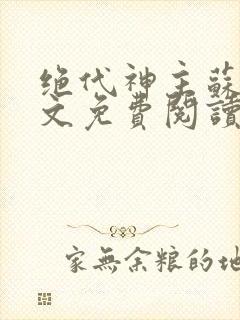 绝代神主蘇
文免費閱讀
家無余粮的地